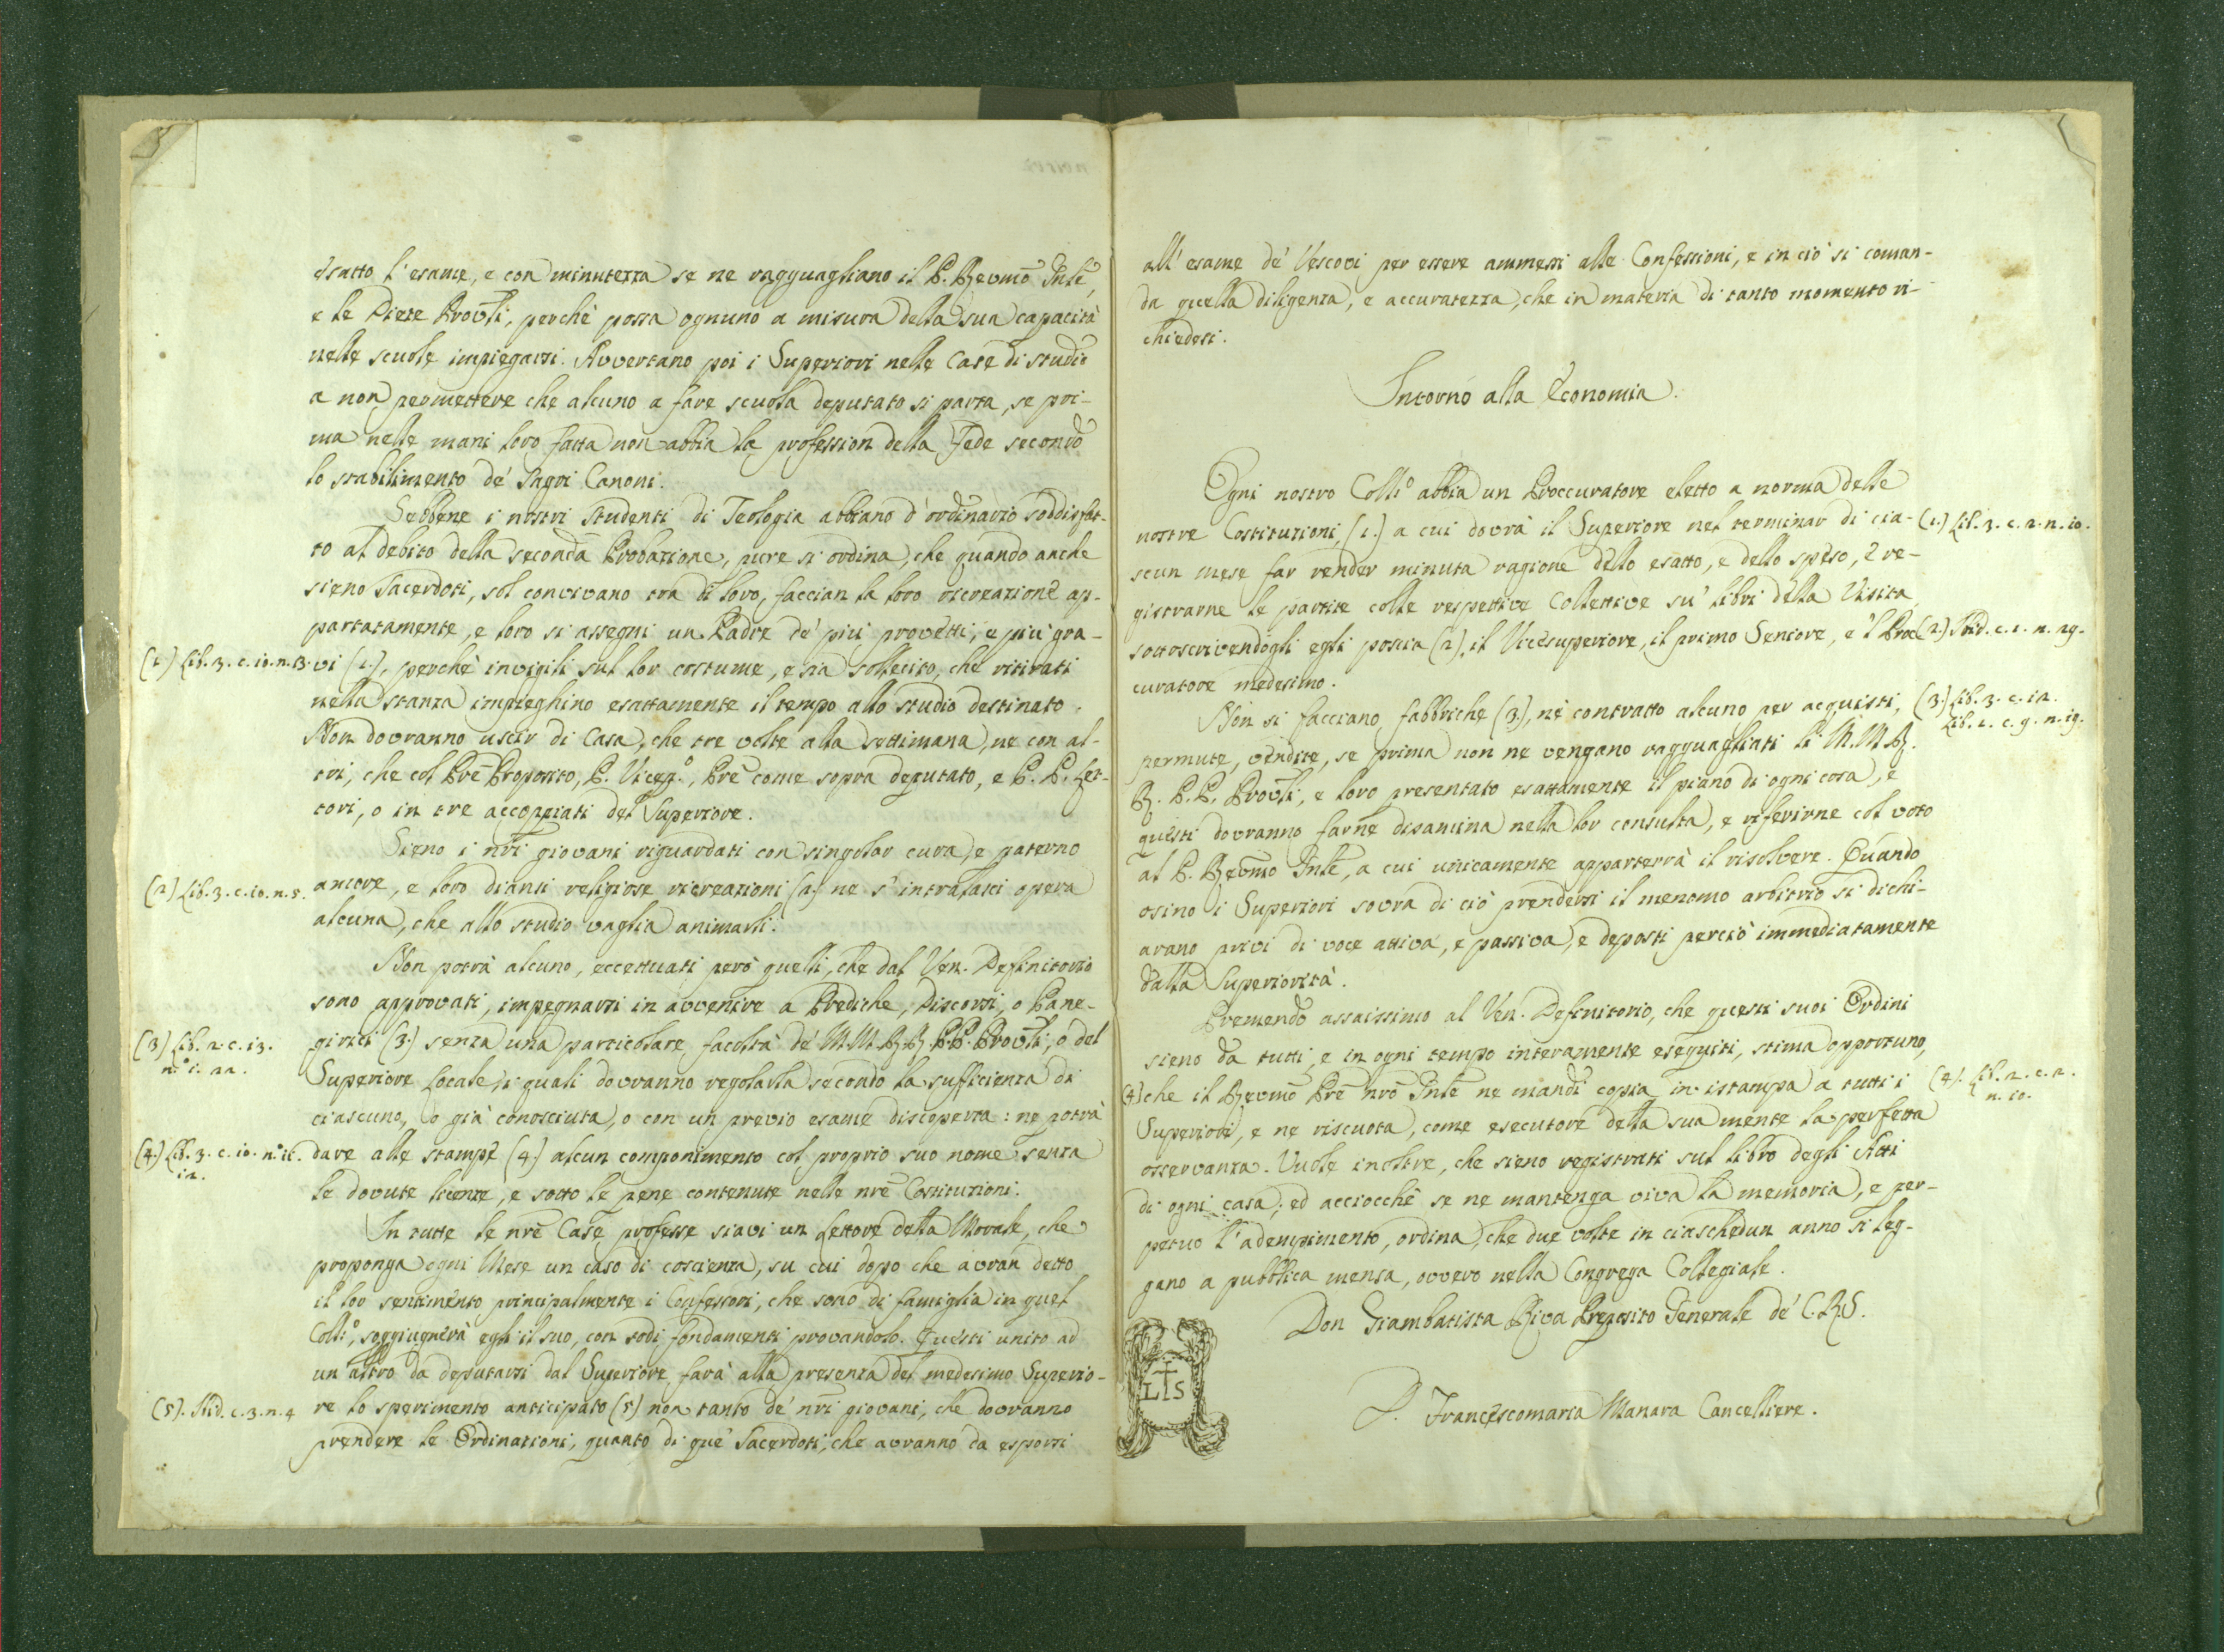 esatto l'esame, e con minutezza se ne ragguagliano il P. Revmo Gnle,
e le Diete Provli, perchè possa ognuno a misura della sua capacità
nelle scuole impiegarsi. Avvertano poi i Superiori nelle Case di studio
a non permettere che alcuno a fare scuola deputato si parta, se pri-
ma nelle mani loro fatta non abbia la profession della Fede secondo
lo stabilimento de' Sagri Canoni.
Sebbene i nostri Studenti di Teologia abbiano d'ordinario soddisfat-
to al debito della seconda Probazione, pure si ordina, che quando anche
sieno Sacerdoti, sol convivano tra di loro, faccian la loro ricreazione ap-
partatamente, e loro si assegni un Padre de' più provetti, e più gra-
(1) Lib. 3. c. 10. n. 13. vi (1.), perchè invigili sul lor costume, e sia sollecito, che ritirati
nella stanza impieghino esattamente il tempo allo studio destinato.
Non dovranno uscir di Casa, che tre volte alla settimana, ne con al-
tri, che col Pre Proposito, P. Vicep.º, Pre come sopra deputato, e P. P. Let-
tori, o in tre accoppiati del Superiore.
Sieno i nri giovani riguardati con singolar cura, e paterno
(2) Lib. 3. c. 10. n. 5. amore, e loro diansi religiose ricreazioni (2.) ne s'intralasci opera
alcuna, che allo studio vaglia animarli.
Non potrà alcuno, eccettuati però quelli, che dal Ven. Definitorio
sono approvati, impegnarsi in avvenire a Prediche, Discorsi, o Pane-
(3) Lib. 2. c. 13. girici (3.) senza una particolare facoltà de' M M R R. P. P. Provli, o del
n.º 1. 22. Superiore Locale, i quali dovranno regolarla secondo la sufficienza di
ciascuno, o già conosciuta, o con un previo esame discoperta: ne potrà
(4.) Lib. 3. c. 10. n.º 11. dare alle stampe (4.) alcun componimento col proprio suo nome senza
12. le dovute licenze, e sotto le pene contenute nelle nre Costituzioni.
In tutte le nre Case professe siavi un Lettore della Morale, che
proponga ogni Mese un caso di coscienza, su cui dopo che avran detto
il lor sentimento principalmente i Confessori, che sono di famiglia in quel
Colli.º, soggiugnerà egli il suo, con sodi fondamenti provandolo. Questi unito ad
un altro da deputarsi dal Superiore, farà alla presenza del medesimo Superio-
(5). Ibid. c. 3. n. 4 re lo sperimento anticipato (5) non tanto de' nri giovani, che dovranno
prendere le Ordinazioni, quanto di que' Sacerdoti, che avranno da esporsi
all'esame de' Vescovi per essere ammessi alle Confessioni, e in ciò si coman-
da quella diligenza, e accuratezza, che in materia di tanto momento ri-
chiedesi.
Intorno alla Economia.
Ogni nostro Colli.º abbia un Proccuratore eletto a norma delle
nostre Costituzioni, (1.) a cui dovrà il Superiore nel terminar di cia- (1.) Lib. 3. c. 2. n. 10.
scun mese far render minuta ragione dello esatto, e dello speso, e re-
gistrarne le partite colle respettive Collettive su' libri della Visita
sottoscrivendogli egli poscia (2), il Vicesuperiore, il primo Seniore, e 'l Proc (2.) Ibid. c. 1. n. 29.
curatore medesimo.
Non si facciano fabbriche (3.), nè contratto alcuno per acquisti, (3.) Lib. 3. c. 12.
Lib. 1. c. 9. n. 19.
permute, vendite, se prima non ne vengano ragguagliati li M. M. R.
R. P. P. Provli, e loro presentato esattamente il piano di ogni cosa, e
questi dovranno farne disamina nella lor consulta, e riferirne col voto
al P. Revmo Gnle, a cui unicamente apparterrà il risolvere. Quando
osino i Superiori sovra di ciò prendersi il menomo arbitrio si dichi-
arano privi di voce attiva, e passiva, e deposti perciò immediatamente
dalla Superiorità.
Premendo assaissimo al Ven. Definitorio, che questi suoi Ordini
sieno da tutti, e in ogni tempo interamente eseguiti, stima opportuno,
(4) che il Revmo Pre nro Gnle ne mandi copia in istampa a tutti i (4). Lib. 2. c. 2.
n. 10.
Superiori, e ne riscuota, come esecutore della sua mente la perfetta
osservanza. Vuole inoltre, che sieno registrati sul libro degli Atti
di ogni casa; ed acciocchè se ne mantenga viva la memoria, e per-
petuo l'adempimento, ordina, che due volte in ciaschedun anno si leg-
gano a pubblica mensa, ovvero nella Congrega Collegiale.
Don Giambatista Riva Preposito Generale de' C. R. S.
L S
D. Francescomaria Manara Cancelliere.